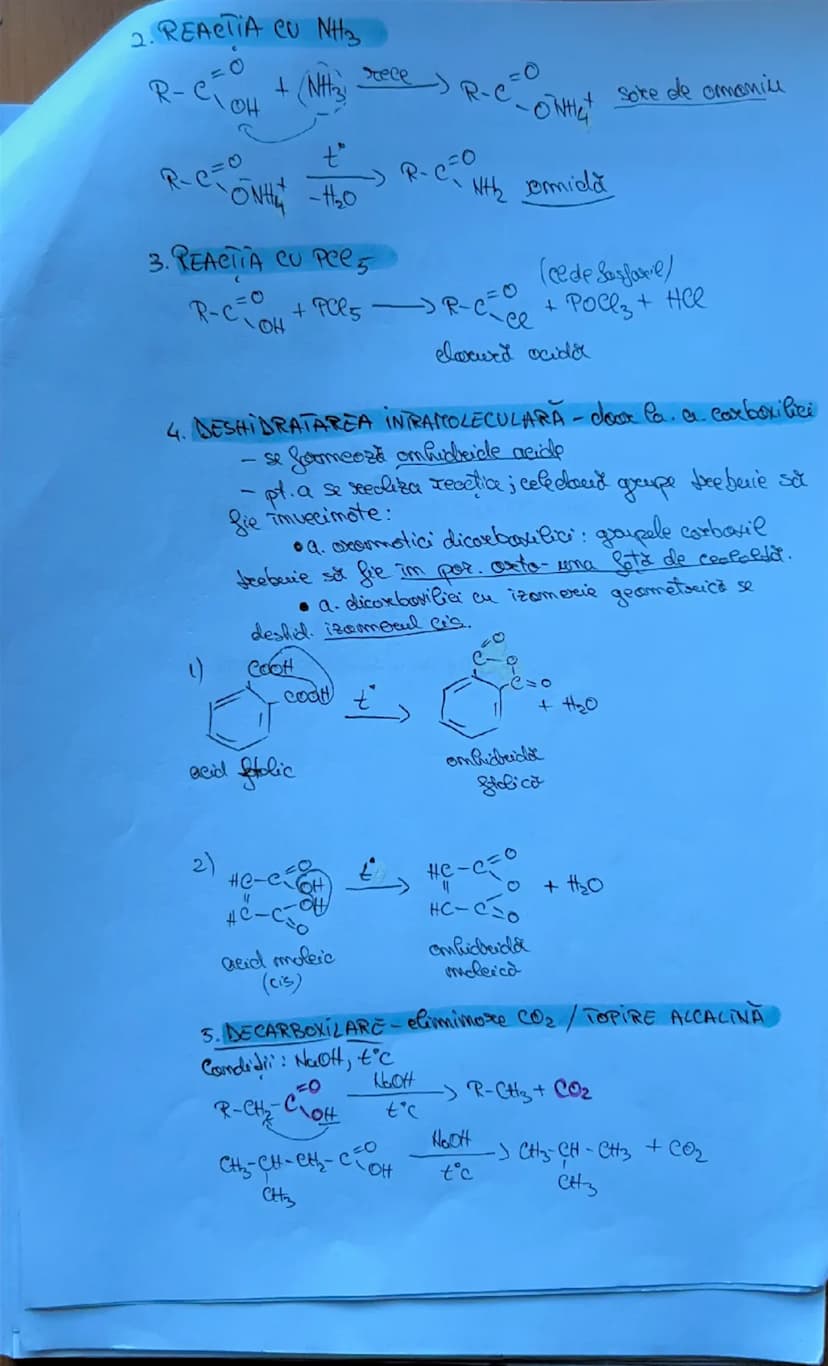 2. REACȚIA CU NH3
R-C=O\OH + (NH3) rece → R-C=O-ŌNH4+ sare de amoniu
R-C=O\ŌNH4+ t° → -H2O R-C=O\NH2 amidă
3. REACȚIA CU PCl5
(cede fosforil)
R-C=O\OH + PCl5 → R-C=O\Cl + POCl3 + HCl
clorură acidă
4. DESHIDRATAREA INTRAMOLECULARĂ - doar la a. carboxilici
- se formează anhidride acide
- pt. a se realiza reacția; cele două grupe trebuie să
fie învecinate:
• a. aromatici dicarboxilici: grupele carboxil
trebuie să fie în poz. orto- una față de cealaltă.
• a. dicarboxilici cu izomerie geometrică se
deshid. izomerul cis.
1) COOH COOH t° → C=O O C=O + H2O
acid ftalic anhidridă
ftalică
2) HC-C=O\OH t° → HC-C=O O + H2O
HC-C-OH=O HC-C=O
acid maleic anhidridă
(cis) maleică
5. DECARBOXILARE - eliminare CO2 / TOPIRE ALCALINĂ
Condiții: NaOH, t°C
R-CH2-C=O\OH NaOH t°C → R-CH3 + CO2
CH3-CH-CH2-C=O\OH NaOH t°C → CH3-CH-CH3 + CO2
CH3 CH3